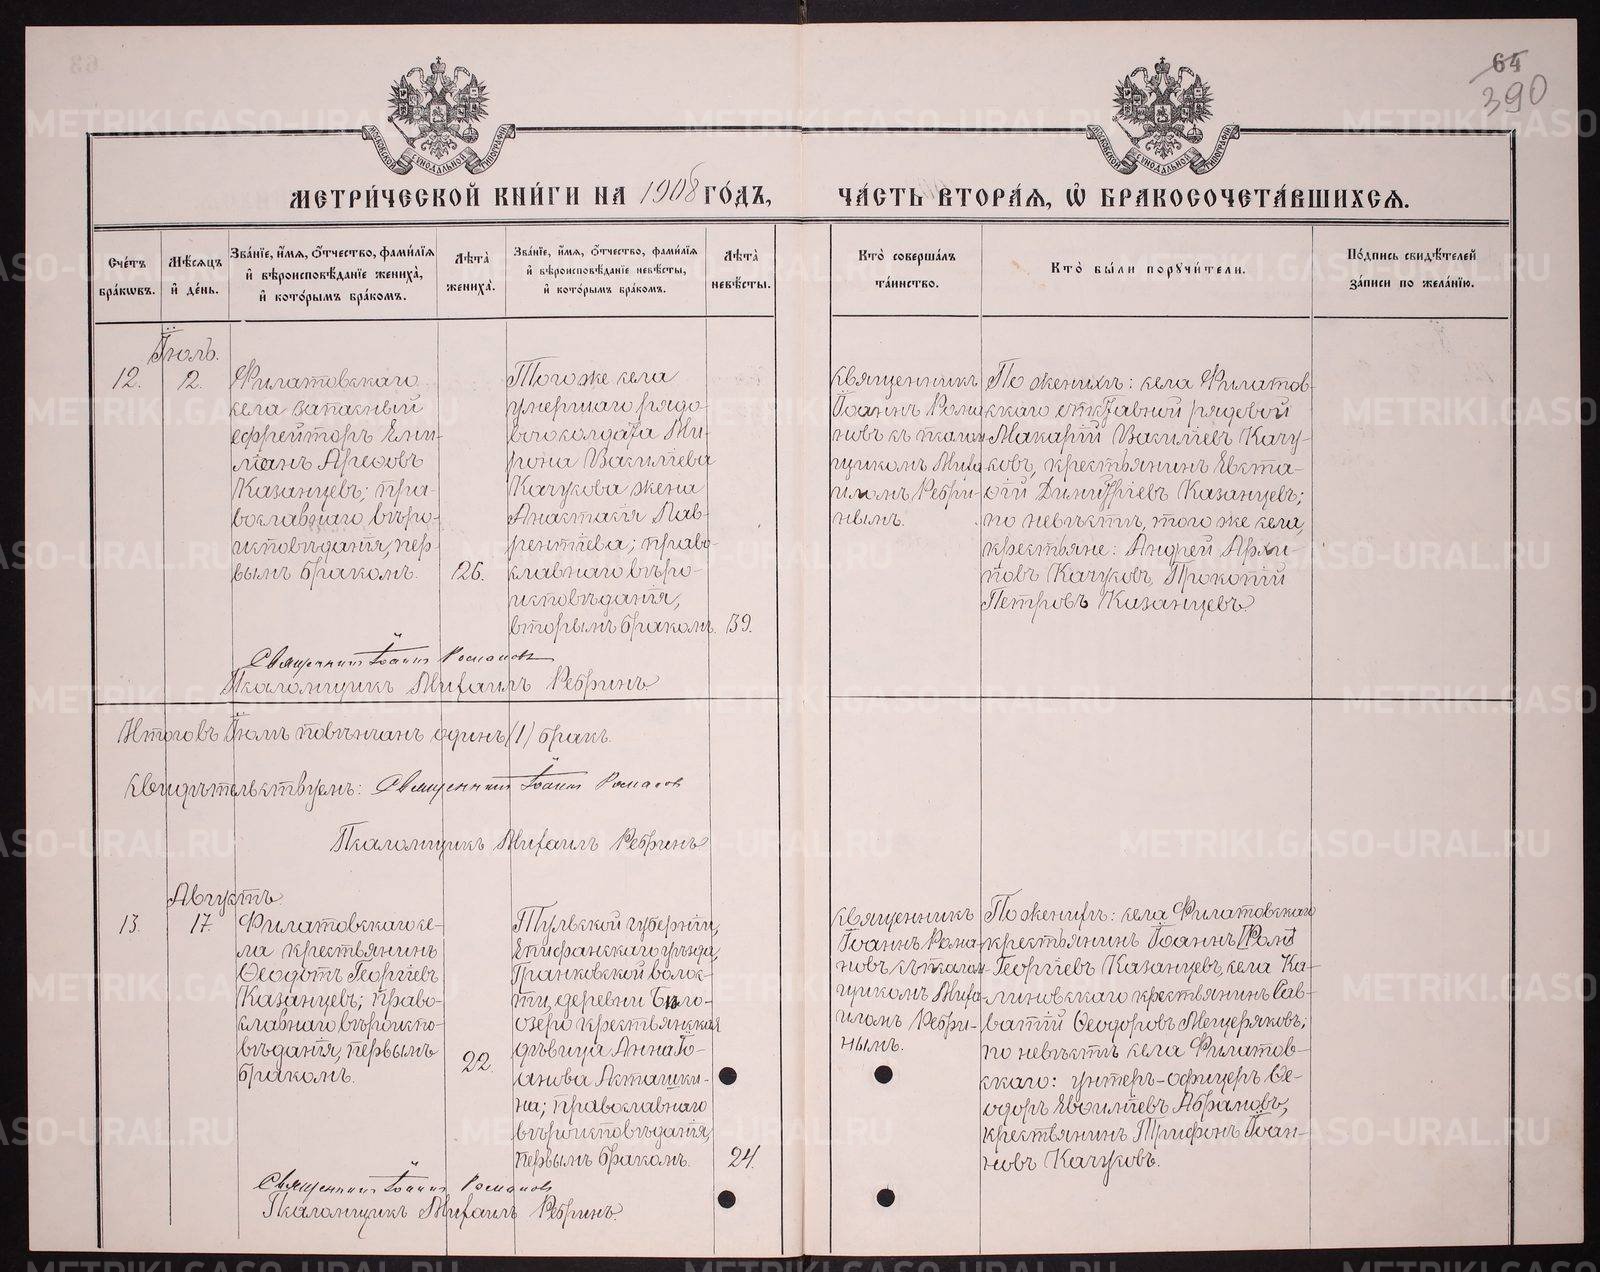 64
390
МОСКОВСКОЙ СѴНОДАЛЬНОЙ ТИПОГРАФІИ
МОСКОВСКОЙ СѴНОДАЛЬНОЙ ТИПОГРАФІИ
МЕТРИ́ЧЕСКОЙ КНИ́ГИ НА 1908 ГО́ДЪ,
ЧА́СТЬ ВТОРА́Я, Ѡ҆ БРАКОСОЧЕТА́ВШИХСЯ.
Сче́тъ бра́кѡвъ.
Мѣ́сяцъ и҆ де́нь.
Зва́нїе, и҆́мя, о҆́тчество, фами́лїя и҆ вѣроисповѣ́данїе жениха̀, и҆ кото́рымъ бра́комъ.
Лѣта̀ жениха̀.
Зва́нїе, и҆́мя, о҆́тчество, фами́лїя и҆ вѣроисповѣ́данїе невѣ́сты, и҆ кото́рымъ бра́комъ.
Лѣта̀ невѣ́сты.
Кто̀ соверша́лъ та́инство.
Кто̀ бы́ли порꙋчи́тели.
По́дпись свидѣ́телей за́писи по жела́нїю.
Іюль.
12.
2.
Филатовскаго
села запасный
ефрейторъ Ели-
міанъ Арефовъ
Казанцевъ; пра-
вославнаго вѣро-
исповѣданія, пер-
вымъ бракомъ.
26.
Того же села
умершаго рядо-
вого солдата Ми-
рона Василіева
Качукова жена
Анастасія Лав-
рентіева; право-
славнаго вѣро-
исповѣданія,
вторымъ бракомъ.
39.
Священникъ
Іоаннъ Рома-
новъ съ псалом-
щикомъ Миха-
иломъ Ребри-
нымъ.
По женихѣ: села Филатов-
скаго отставной рядовой
Макарій Василіевъ Качу-
ковъ, крестьянинъ Евста-
фій Димитріевъ Казанцевъ;
по невѣстѣ, того же села,
крестьяне: Андрей Архи-
повъ Качуковъ, Прокопій
Петровъ Казанцевъ
Священникъ Іоаннъ Романовъ
Псаломщикъ Михаилъ Ребринъ
Итого въ Іюлѣ повѣнчанъ одинъ (1) бракъ.
Свидѣтельствуемъ: Священникъ Іоаннъ Романовъ
Псаломщикъ Михаилъ Ребринъ
Августъ.
13.
17.
Филатовскаго се-
ла крестьянинъ
Ѳеодотъ Георгіевъ
Казанцевъ; право-
славнаго вѣроиспо-
вѣданія, первымъ
бракомъ.
22.
Тульской губерніи,
Епифанскаго уѣзда,
Гранковской волос-
ти, деревни Бѣло-
озеро крестьянская
дѣвица Анна Іо-
анова Асташки-
на; православнаго
вѣроисповѣданія,
первымъ бракомъ.
24.
Священникъ
Іоаннъ Рома-
новъ съ псалом-
щикомъ Миха-
иломъ Ребри-
нымъ.
По женихѣ: села Филатовскаго
крестьянинъ Іоаннъ [Ром]
Георгіевъ Казанцевъ, села Ка-
линовскаго крестьянинъ Сав-
ватій Ѳеодоровъ Мещеряковъ;
по невѣстѣ села Филатов-
скаго: унтеръ-офицеръ Ѳе-
одоръ Евфиміевъ Абрамовъ,
крестьянинъ Трифонъ Іоан-
новъ Качуковъ.
Священникъ Іоаннъ Романовъ
Псаломщикъ Михаилъ Ребринъ.
METRIKI.GASO-URAL.RU